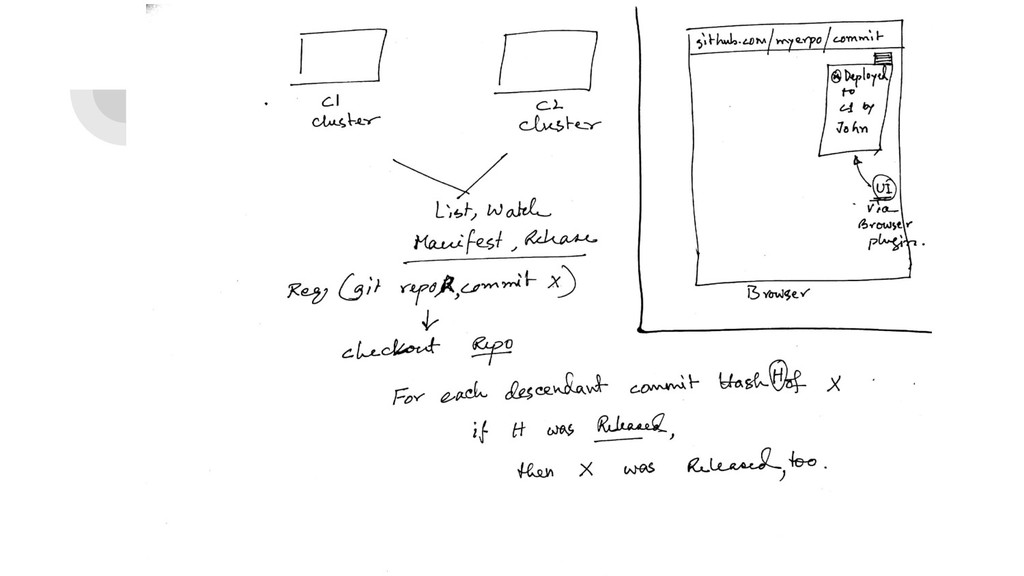 C1
cluster
C2
cluster
List, Watch
Manifest, Release
Req (git repo R, commit X)
checkout Repo
For each descendant commit Hash H of X
if H was Released,
then X was Released, too.
github.com/myerpo/commit
Deployed
to
c1 by
John
UI
via
Browser
plugin.
Browser